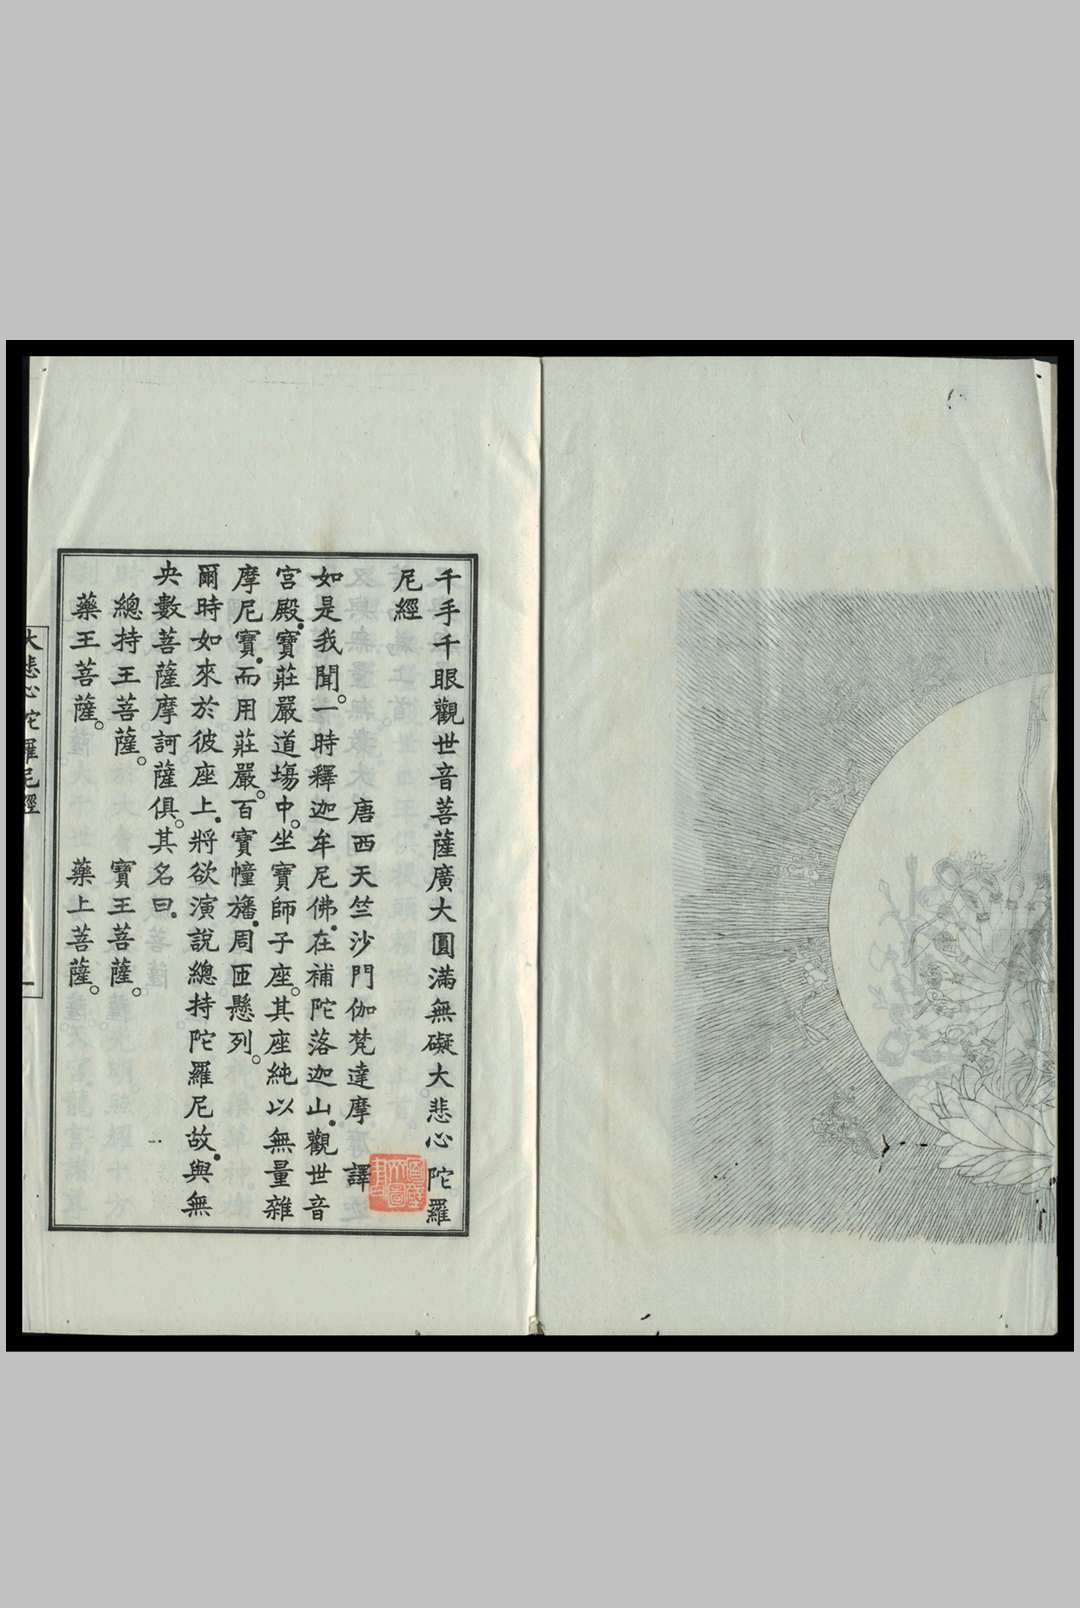 千手千眼觀世音菩薩廣大圓滿無礙大悲心陀羅
尼經
唐西天竺沙門伽梵達摩 譯
如是我聞。一時釋迦牟尼佛.在補陀落迦山.觀世音
宮殿.寶莊嚴道場中。坐寶師子座。其座純以無量雜
摩尼寶.而用莊嚴。百寶幢旛.周匝懸列。
爾時如來於彼座上.將欲演說總持陀羅尼故.與無
央數菩薩摩訶薩俱。其名曰.
總持王菩薩。 寶王菩薩。
藥王菩薩。 藥上菩薩。
大悲心陀羅尼經 一